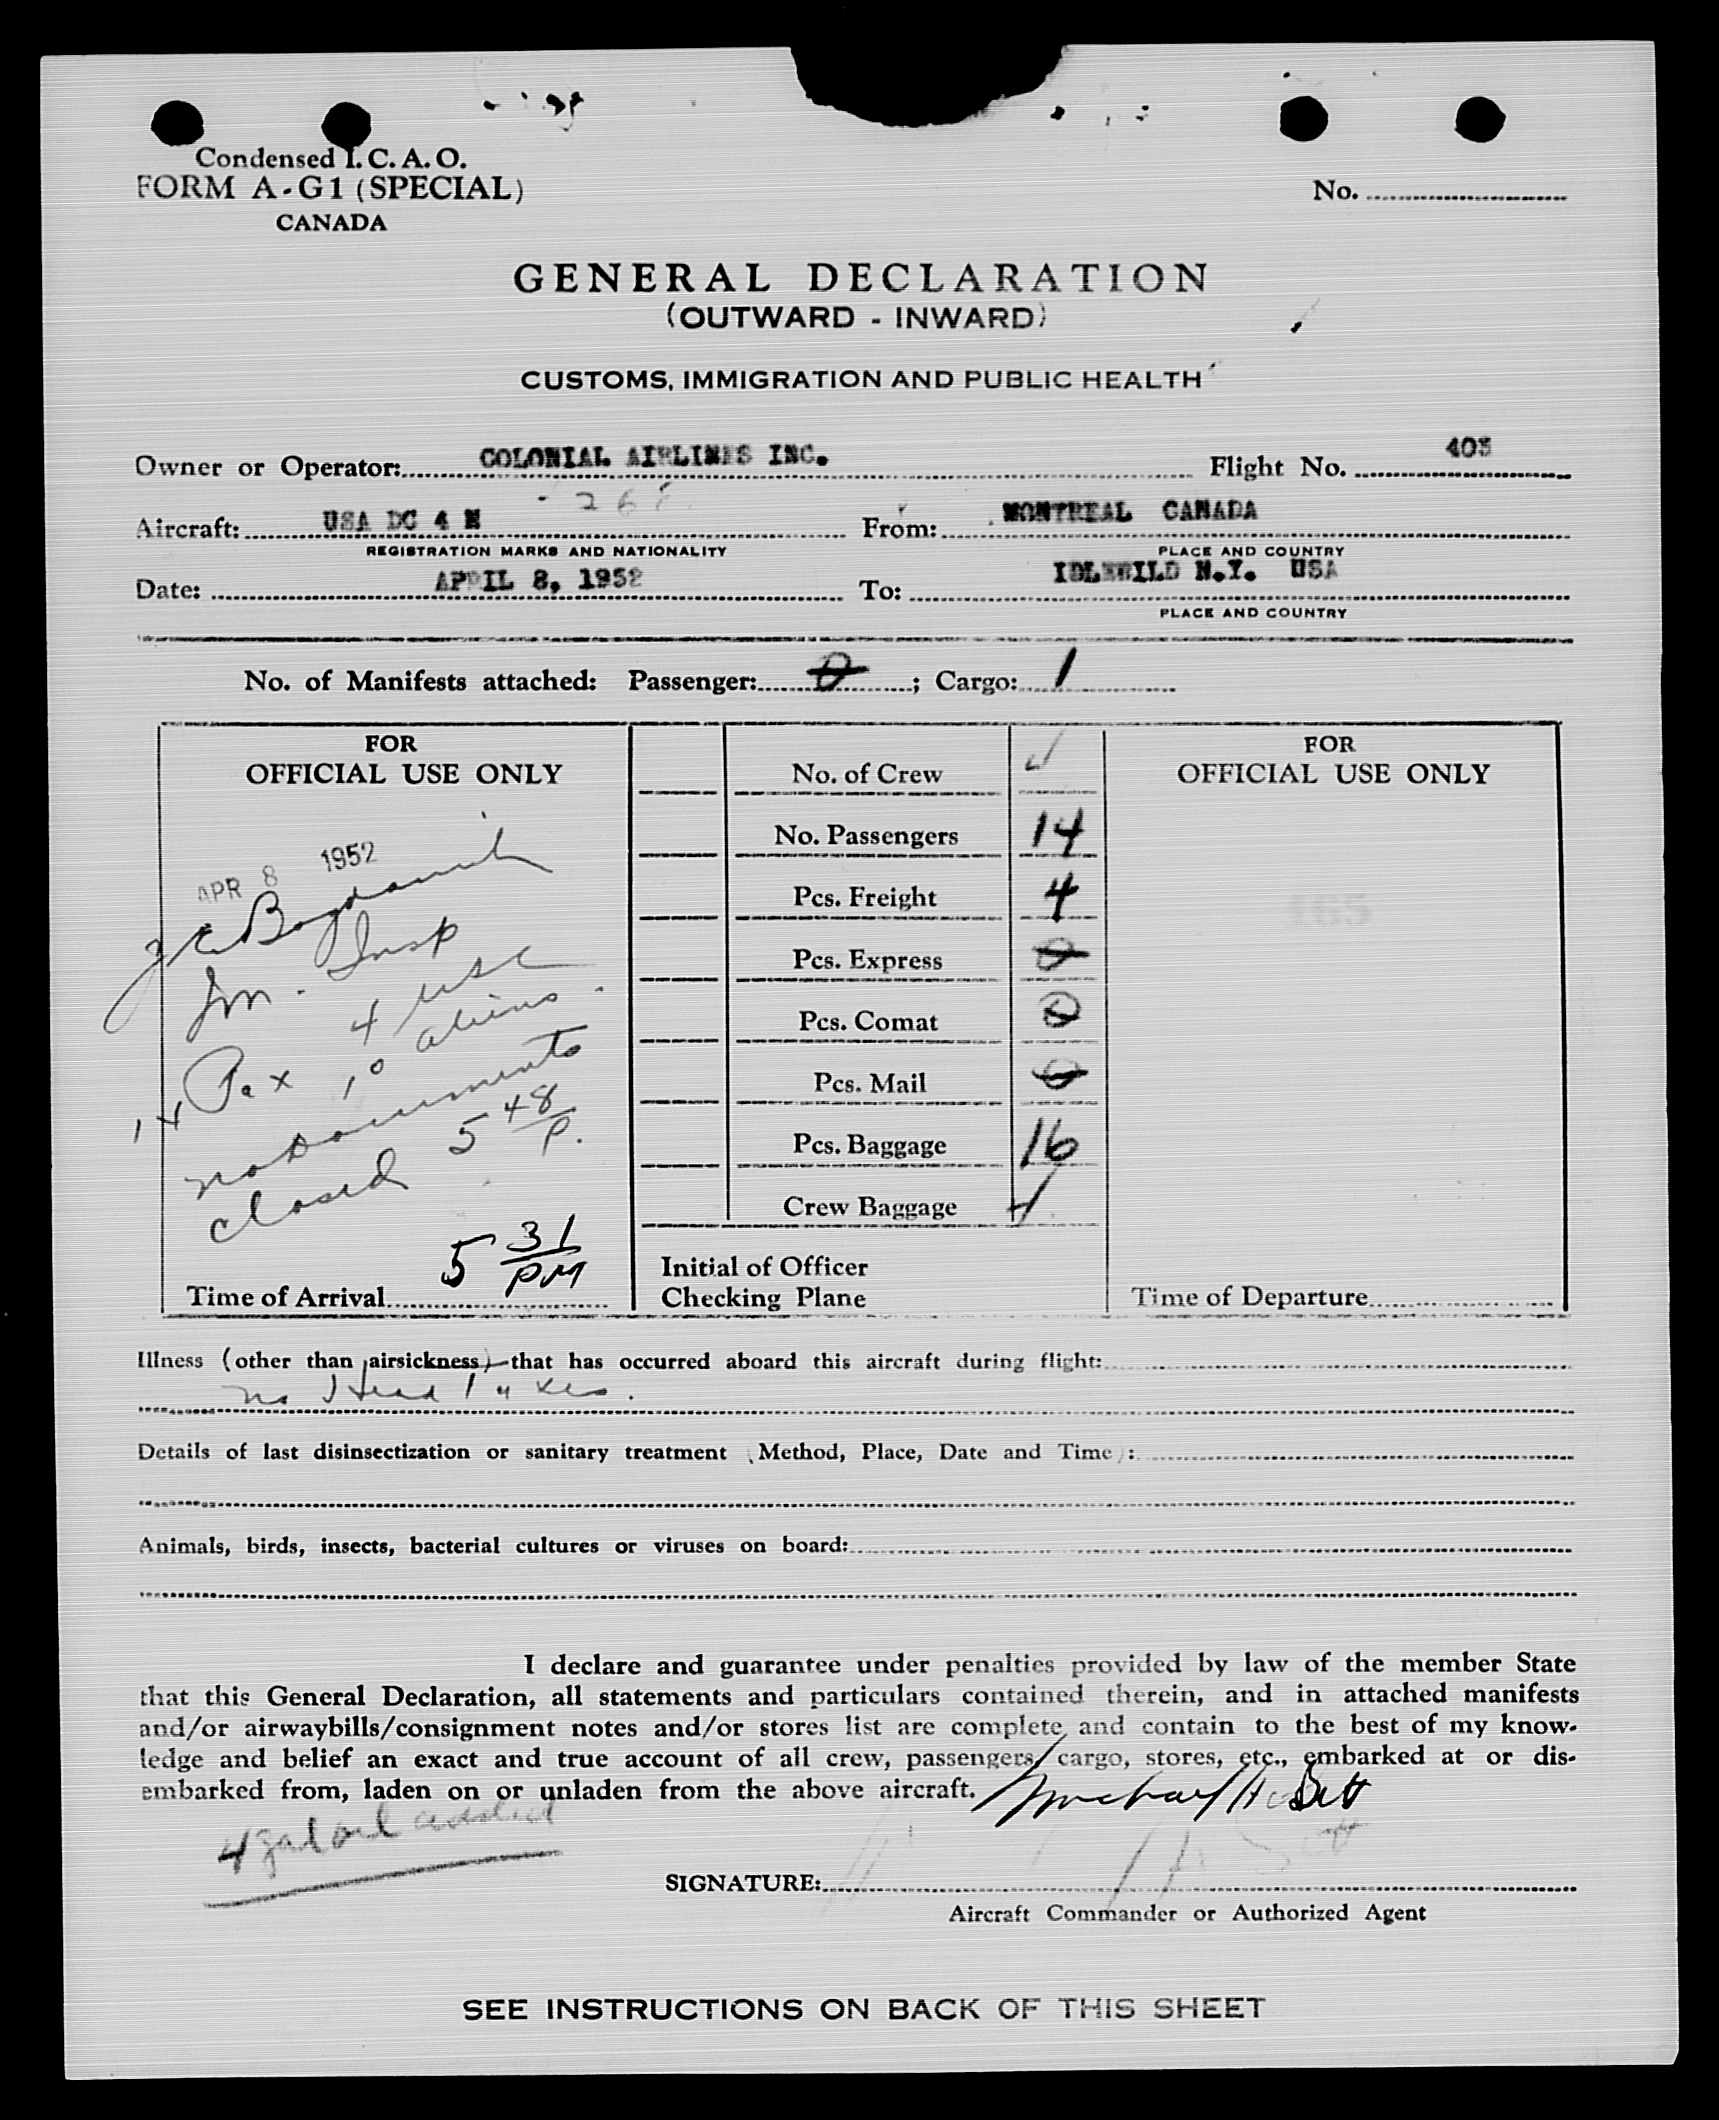 Condensed I.C.A.O.
FORM A-G1 (SPECIAL)
CANADA
No.
GENERAL DECLARATION
(OUTWARD - INWARD)
CUSTOMS, IMMIGRATION AND PUBLIC HEALTH
Owner or Operator: COLONIAL AIRLINES INC. Flight No. 405
Aircraft: USA DC 4 N 268 From: MONTREAL CANADA
REGISTRATION MARKS AND NATIONALITY PLACE AND COUNTRY
Date: APRIL 8, 1952 To: IDLEWILD N.Y. USA
PLACE AND COUNTRY
No. of Manifests attached: Passenger: 0; Cargo: 1
FOR
OFFICIAL USE ONLY
APR 8 1952
Im. Insp
14 Pax 4 usc
10 aliens.
no documents
closed 5 48 P.
Time of Arrival 5 31 PM
No. of Crew
No. Passengers 14
Pcs. Freight 4
Pcs. Express 0
Pcs. Comat 0
Pcs. Mail 0
Pcs. Baggage 16
Crew Baggage
Initial of Officer
Checking Plane
FOR
OFFICIAL USE ONLY
Time of Departure
Illness (other than airsickness) that has occurred aboard this aircraft during flight:
no Head Taxes.
Details of last disinsectization or sanitary treatment (Method, Place, Date and Time):
Animals, birds, insects, bacterial cultures or viruses on board:
I declare and guarantee under penalties provided by law of the member State
that this General Declaration, all statements and particulars contained therein, and in attached manifests
and/or airwaybills/consignment notes and/or stores list are complete and contain to the best of my know-
ledge and belief an exact and true account of all crew, passengers, cargo, stores, etc., embarked at or dis-
embarked from, laden on or unladen from the above aircraft.
4 gal oil added
SIGNATURE:
Aircraft Commander or Authorized Agent
SEE INSTRUCTIONS ON BACK OF THIS SHEET